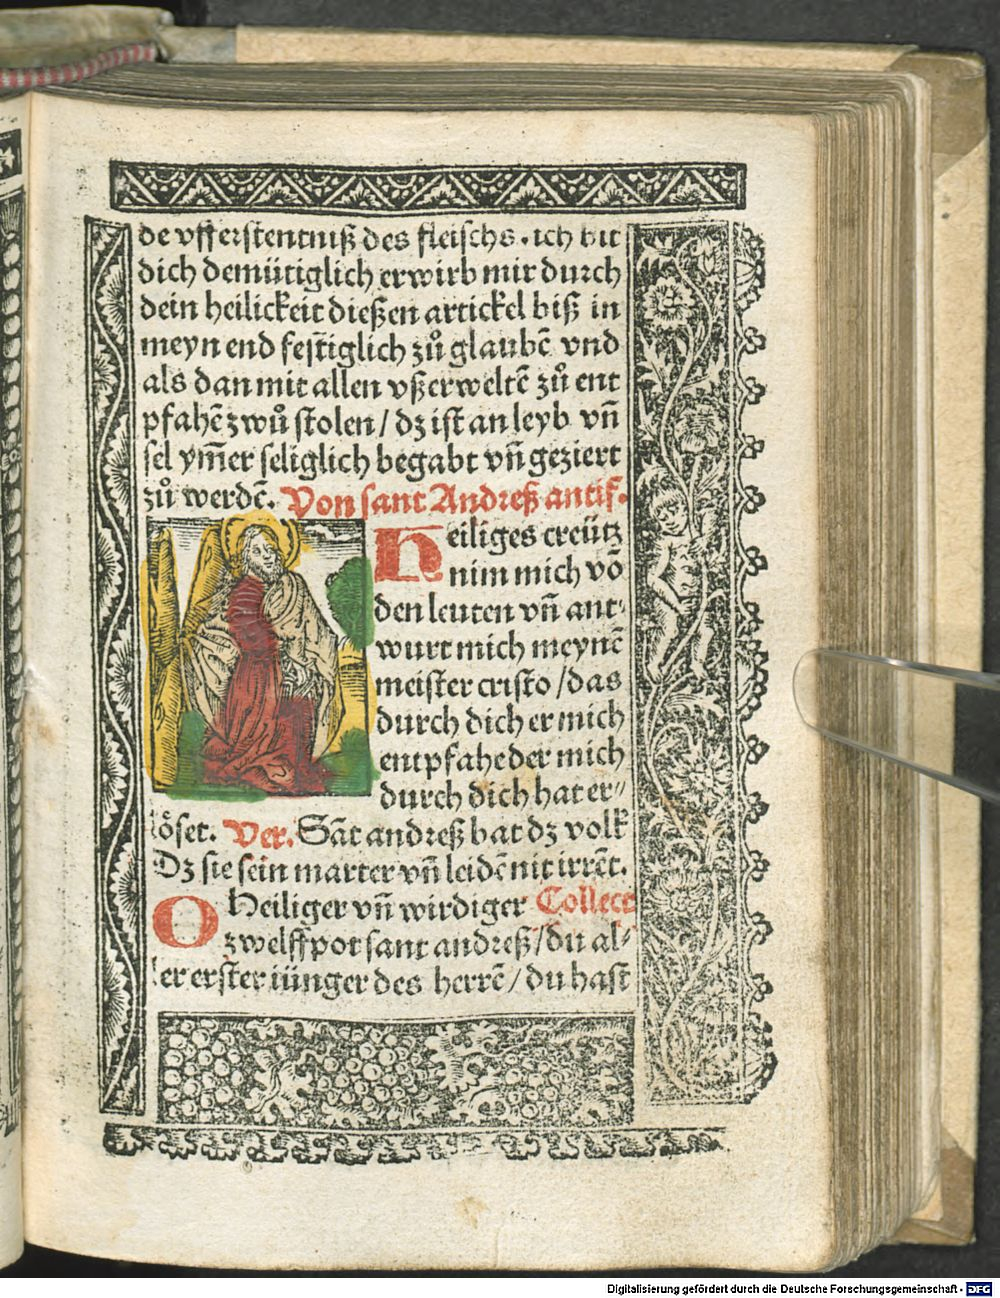 de vfferstentniß des fleischs. ich bit
dich demütiglich erwirb mir durch
dein heilickeit dießen artickel biß in
meyn end festiglich zů glaubē vnd
als dan mit allen vßerweltē zů ent
pfahē zwů stolen / dz ist an leyb vñ
sel ym̄er seliglich begabt vñ geziert
zů werdē. Von sant Andreß antif.
Heiliges creütz
nim mich vō
den leuten vñ ant⸗
wurt mich meynē
meister cristo / das
durch dich er mich
entpfahe der mich
durch dich hat er⸗
löset. Ver. Sāt andreß bat dz volk
Dz sie sein marter vñ leidē nit irrēt.
O Heiliger vñ wirdiger Collect
zwelffpot sant andreß / du al⸗
ler erster iünger des herrē / du hast
Digitalisierung gefördert durch die Deutsche Forschungsgemeinschaft - DFG